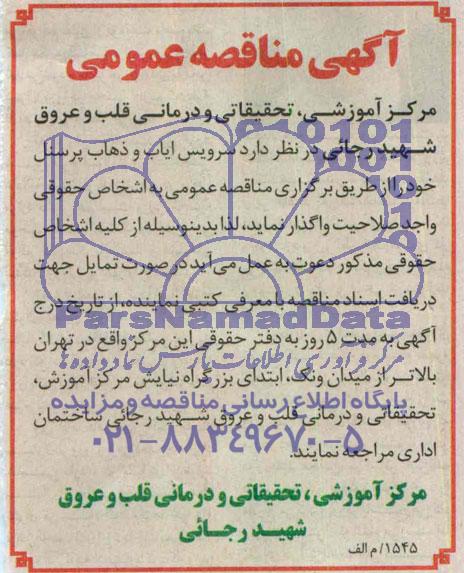 آگهی مناقصه عمومی
مرکز آموزشی، تحقیقاتی و درمانی قلب و عروق
شهید رجائی در نظر دارد سرویس ایاب و ذهاب پرسنل
خود را از طریق برگزاری مناقصه عمومی به اشخاص حقوقی
واجد صلاحیت واگذار نماید، لذا بدینوسیله از کلیه اشخاص
حقوقی مذکور دعوت به عمل می آید در صورت تمایل جهت
دریافت اسناد مناقصه با معرفی کتبی نماینده، از تاریخ درج
ParsNamadData
آگهی به مدت ۵ روز به دفتر حقوقی این مرکز واقع در تهران
مرکز فرآوری اطلاعات پارس نماد داده ها
بالاتر از میدان ونک، ابتدای بزرگراه نیایش مرکز آموزش،
پایگاه اطلاع رسانی مناقصه و مزایده
تحقیقاتی و درمانی قلب و عروق شهید رجائی ساختمان
۰۲۱-۸۸۳۴۹۶۷۰-۵
اداری مراجعه نمایند.
مرکز آموزشی، تحقیقاتی و درمانی قلب و عروق
شهید رجائی
۱۵۴۵/م الف